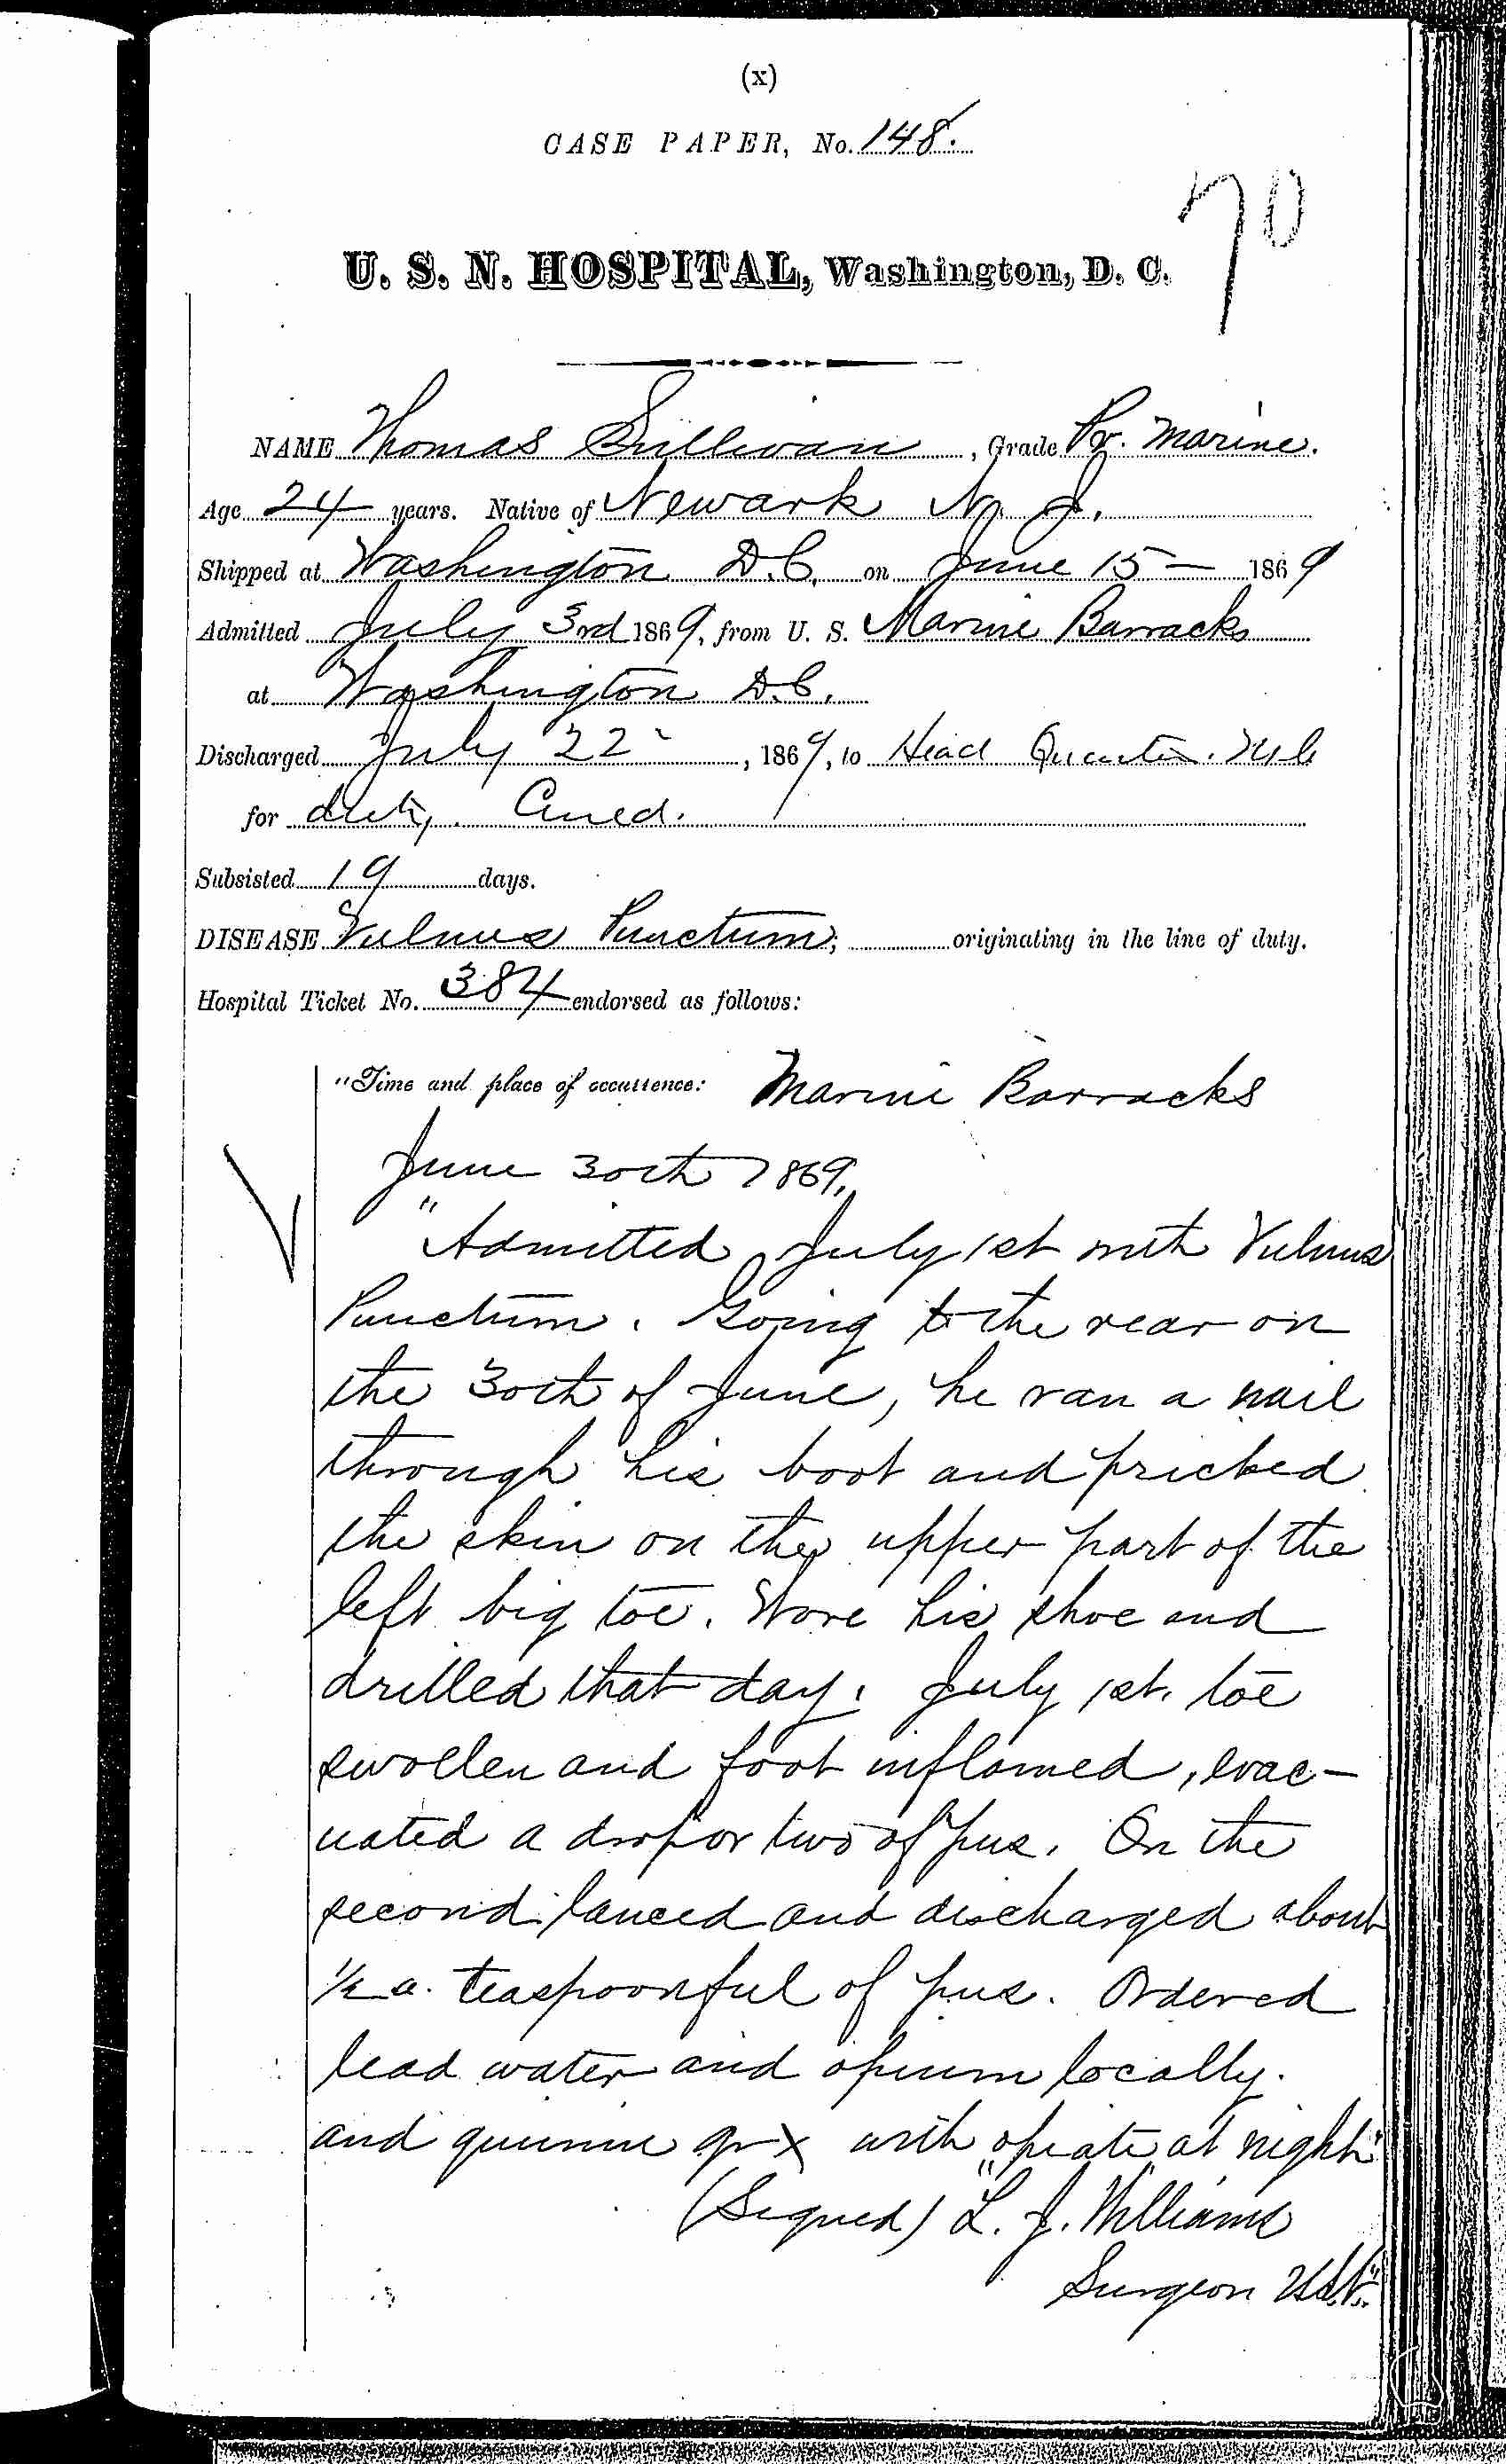 (x)
CASE PAPER, No. 148.
70
U. S. N. HOSPITAL, Washington, D. C.
NAME Thomas Sullivan, Grade Pr. Marine.
Age 24 years. Native of Newark N. J.
Shipped at Washington D.C. on June 15 — 1869
Admitted July 3rd 1869, from U. S. Marine Barracks
at Washington D.C.
Discharged July 22, 1869, to Head Quarters
for duty. Cured.
Subsisted 19 days.
DISEASE Vulnus Punctum; originating in the line of duty.
Hospital Ticket No. 384 endorsed as follows:
"Time and place of occurrence: Marine Barracks
June 30th 1869.
"Admitted July 1st with Vulnus
Punctum. Going to the rear on
the 30th of June, he ran a nail
through his boot and pricked
the skin on the upper part of the
left big toe. Wore his shoe and
drilled that day. July 1st. toe
swollen and foot inflamed, evac-
uated a drop or two of pus. On the
second lanced and discharged about
1/2 a teaspoonful of pus. Ordered
lead water and opium locally.
and quinine gr X with opiate at night"
(Signed) "L. J. Williams
Surgeon U.S.N."